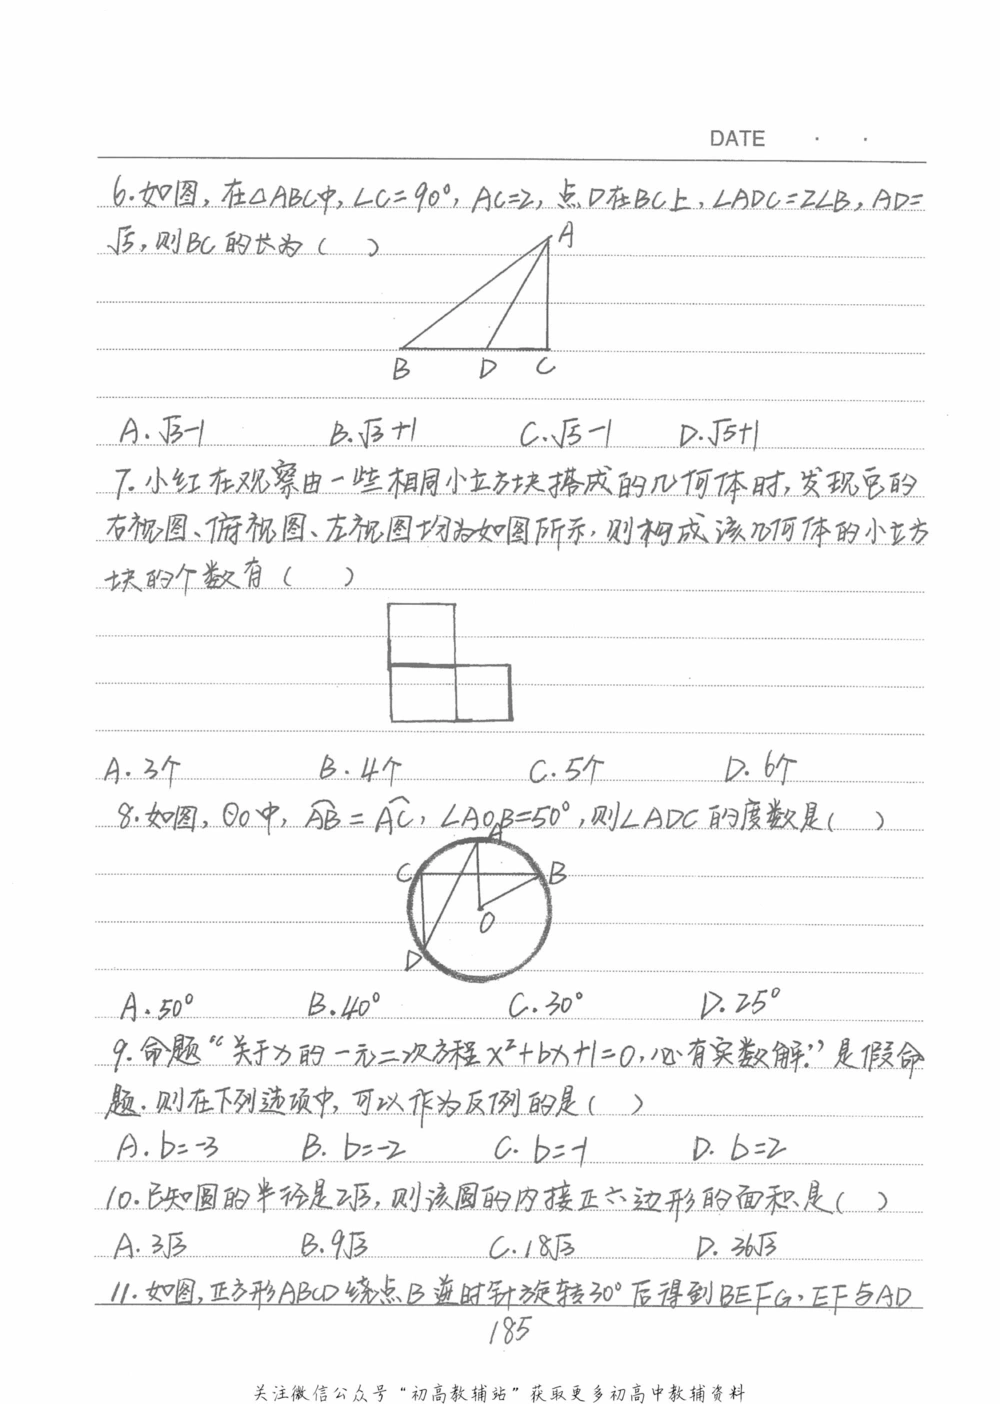 DATE · ·
6.如图,在△ABC中,∠C=90°,AC=2,点D在BC上,∠ADC=2∠B,AD=
√5,则BC的长为( )
A
B D C
A.√3-1 B.√3+1 C.√5-1 D.√5+1
7.小红在观察由一些相同小立方块搭成的几何体时,发现它的
右视图、俯视图、左视图均为如图所示,则构成该几何体的小立方
块的个数有( )
A.3个 B.4个 C.5个 D.6个
8.如图,⊙O中,AB=AC,∠AOB=50°,则∠ADC的度数是( )
A
C B
O
D
A.50° B.40° C.30° D.25°
9.命题“关于x的一元二次方程x²+bx+1=0,必有实数解.”是假命
题.则在下列选项中,可以作为反例的是( )
A.b=-3 B.b=-2 C.b=-1 D.b=2
10.已知圆的半径是2√3,则该圆的内接正六边形的面积是( )
A.3√3 B.9√3 C.18√3 D.36√3
11.如图,正方形ABCD绕点B逆时针旋转30°后得到BEFG,EF与AD
185
关注微信公众号“初高教辅站”获取更多初高中教辅资料